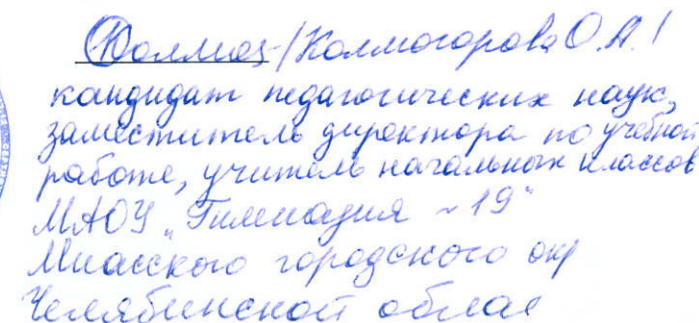 /Колмогорова О.А./
кандидат педагогических наук,
заместитель директора по учебной
работе, учитель начальных классов
МАОУ „Гимназия №19"
Миасского городского окр
Челябинской облас